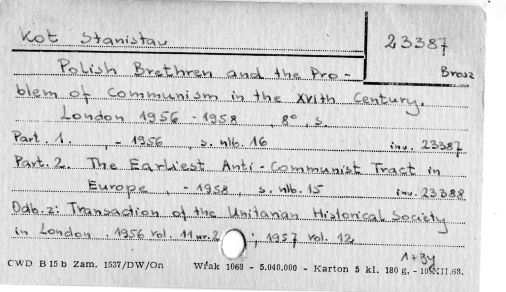 Kot Stanisław
23387
Brosz
Polish Brethren and the Pro-
blem of Communism in the XVIth Century.
London 1956 - 1958, 8°, s.
Part. 1. , - 1956 , s. nlb. 16 inv. 23387
Part. 2. The Earliest Anti-Communist Tract in
Europe , - 1958, s. nlb. 15 inv. 23388
Odb. z: Transaction of the Unitarian Historical Society
in London . 1956 vol. 11 nr. 2 ; 1957 vol. 12
CWD B 15 b Zam. 1537/DW/On W-ak 1068 - 5.040.000 - Karton 5 kl. 180 g. - XII.68.